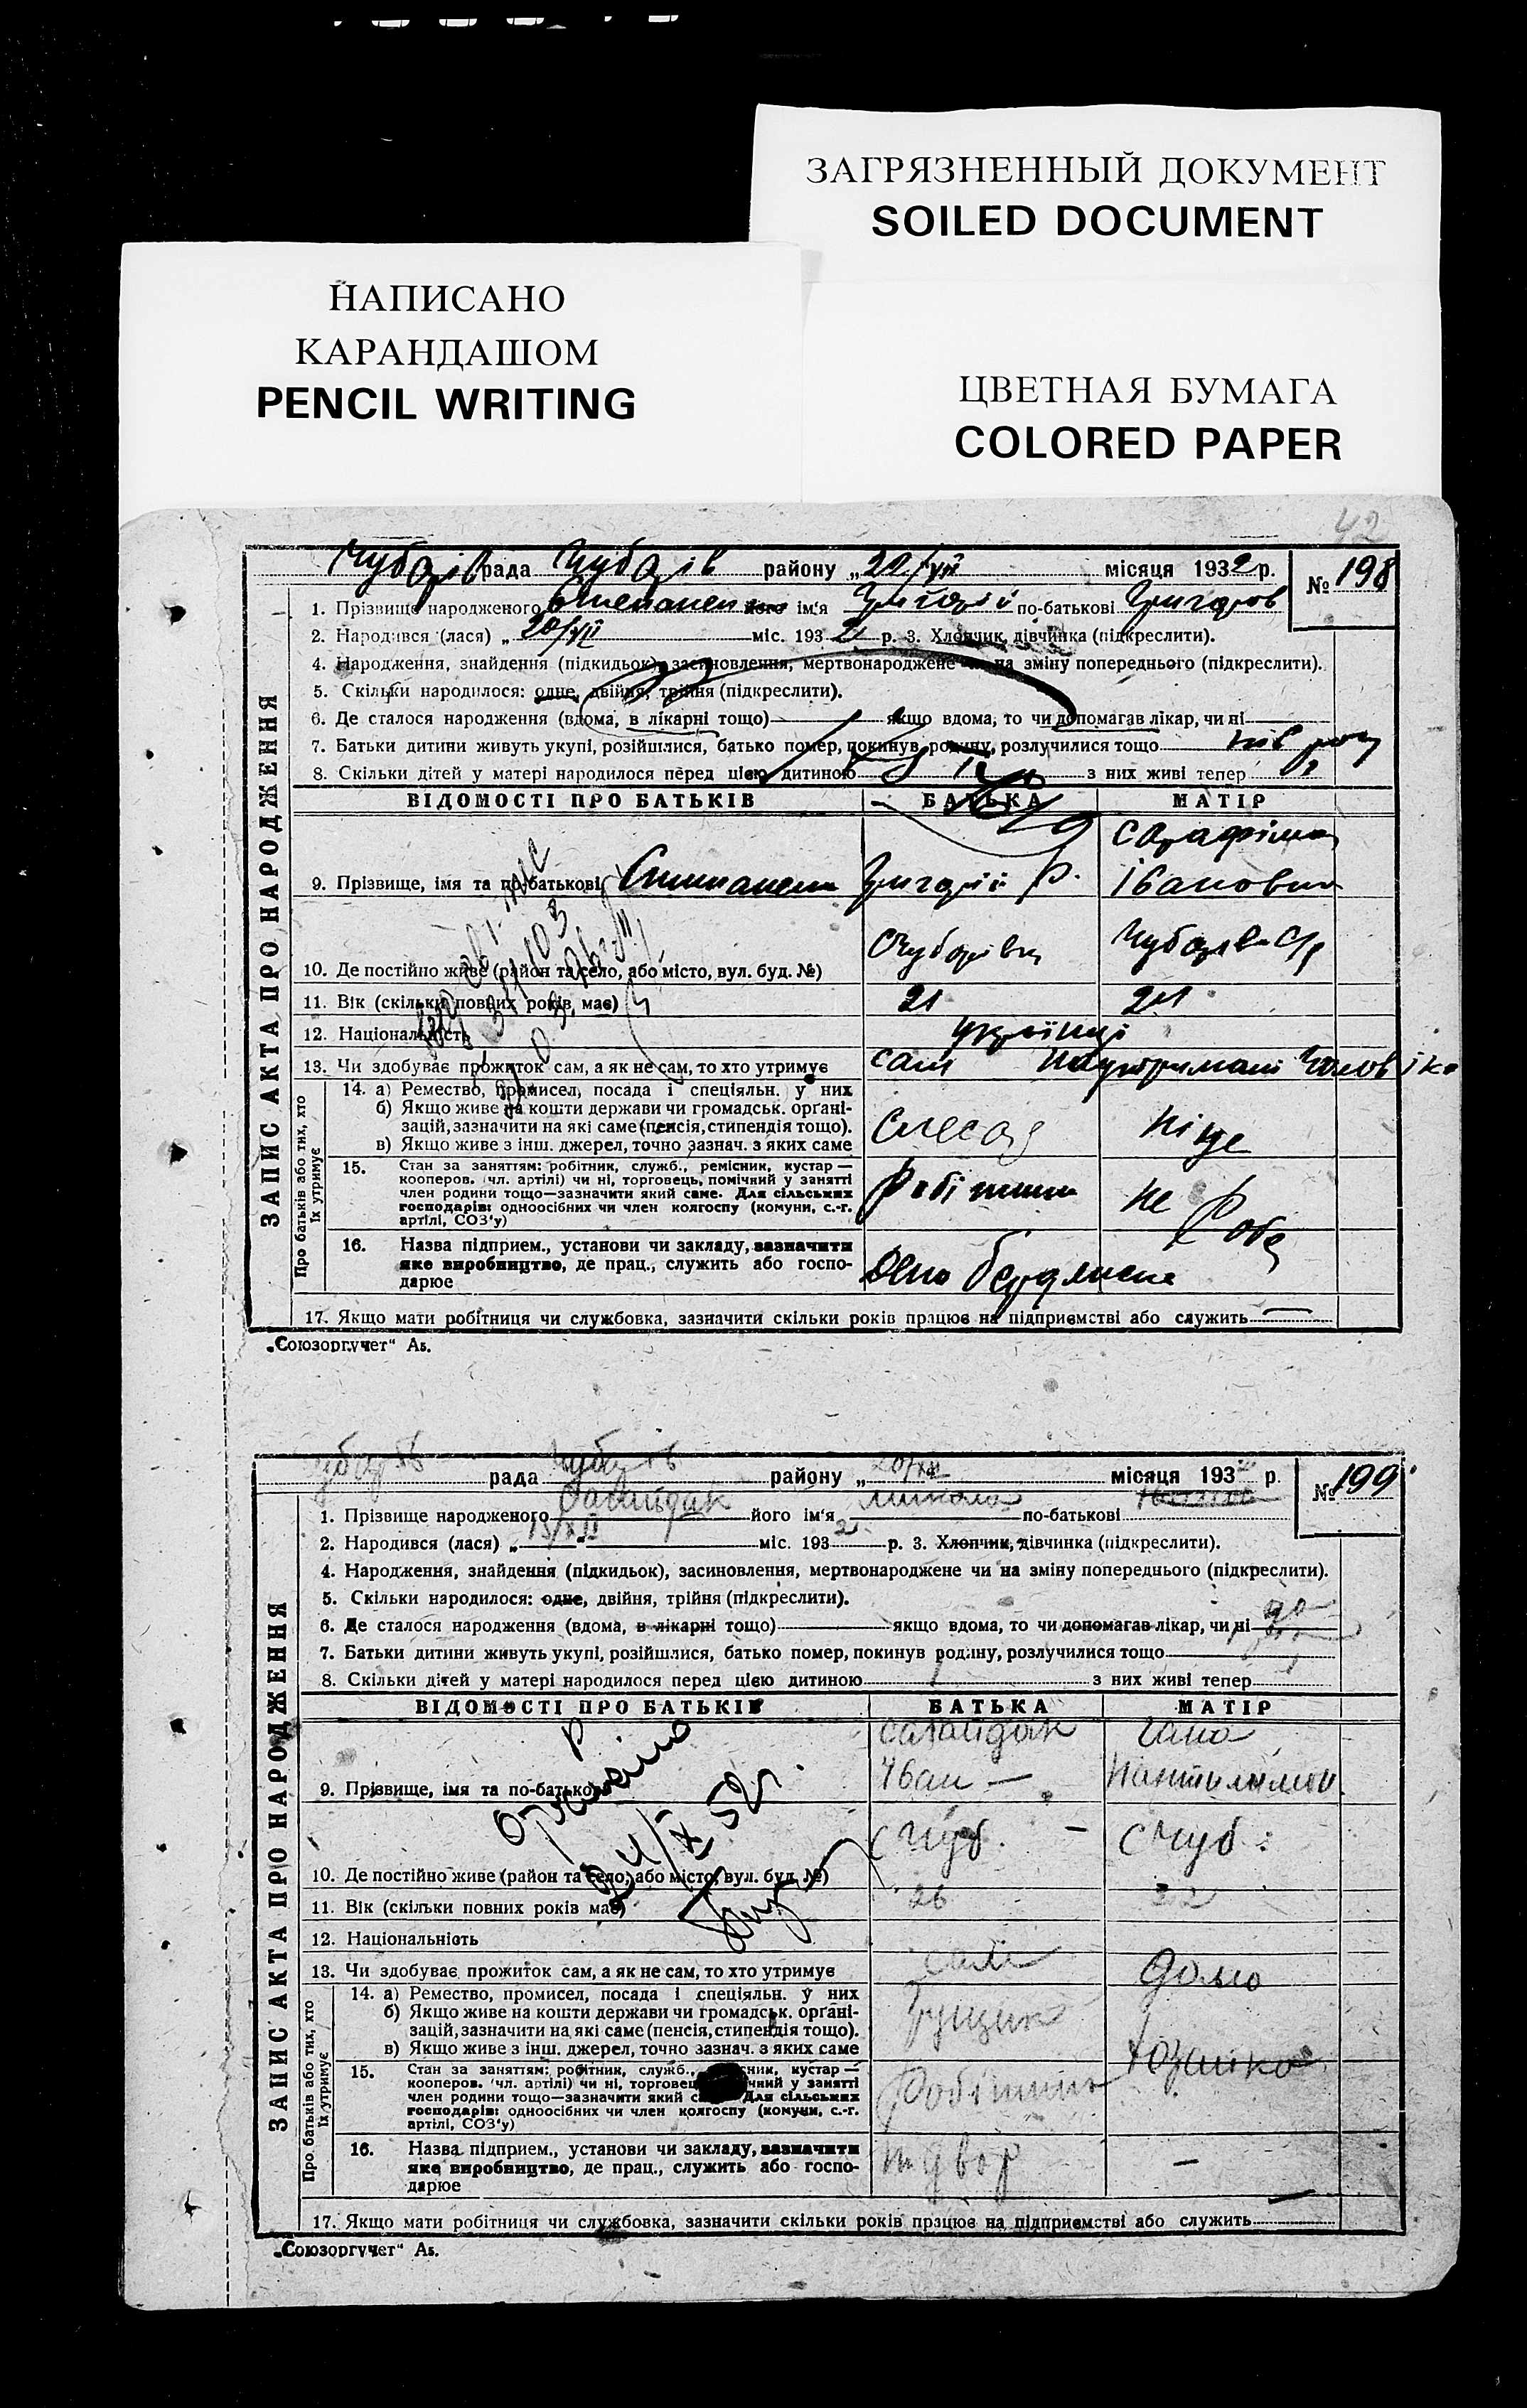 ЗАГРЯЗНЕННЫЙ ДОКУМЕНТ
SOILED DOCUMENT
НАПИСАНО
КАРАНДАШОМ
PENCIL WRITING
ЦВЕТНАЯ БУМАГА
COLORED PAPER
42
рада району „22/VII місяця 1932 р. № 198
1. Прізвище народженого його ім'я Григорій по-батькові Григоров
2. Народився (лася) „ 20/VII міс. 1932 р. 3. Хлопчик, дівчинка (підкреслити).
4. Народження, знайдення (підкидьок), засиновлення, мертвонароджене чи на зміну попереднього (підкреслити).
5. Скільки народилося: одне, двійня, трійня (підкреслити).
6. Де сталося народження (вдома, в лікарні тощо) якщо вдома, то чи допомагав лікар, чи ні
7. Батьки дитини живуть укупі, розійшлися, батько помер, покинув родину, розлучилися тощо
8. Скільки дітей у матері народилося перед цією дитиною з них живі тепер
ВІДОМОСТІ ПРО БАТЬКІВ БАТЬКА МАТІР
9. Прізвище, імя та по-батькові Григорій Івановна
10. Де постійно живе (район та село, або місто, вул. буд. №)
11. Вік (скільки повних років має) 21 21
12. Національність українці
13. Чи здобуває прожиток сам, а як не сам, то хто утримує сам
14. а) Ремество, промисел, посада і спеціяльн. у них
б) Якщо живе на кошти держави чи громадськ. органі-
зацій, зазначити на які саме (пенсія, стипендія тощо).
в) Якщо живе з інш. джерел, точно зазнач. з яких саме
слесар
15. Стан за заняттям: робітник, служб., ремісник, кустар —
кооперов. чл. артілі) чи ні, торговець, помічний у занятті
член родини тощо—зазначити який саме. Для сільських
господарів: одноосібних чи член колгоспу (комуни, с.-г.
артілі, СОЗ'у)
робітник не роб
16. Назва підприєм., установи чи закладу, зазначити
яке виробництво, де прац., служить або госпо-
дарює
17. Якщо мати робітниця чи службовка, зазначити скільки років працює на підприємстві або служить
ЗАПИС АКТА ПРО НАРОДЖЕННЯ
Про батьків або тих, хто
їх утримує
„Союзоргучет" А5.
рада району „ 20/XII місяця 1932 р. № 199
1. Прізвище народженого Сагайдак його ім'я Микола по-батькові
2. Народився (лася) „ 15/XII міс. 1932 р. 3. Хлопчик, дівчинка (підкреслити).
4. Народження, знайдення (підкидьок), засиновлення, мертвонароджене чи на зміну попереднього (підкреслити).
5. Скільки народилося: одне, двійня, трійня (підкреслити).
6. Де сталося народження (вдома, в лікарні тощо) якщо вдома, то чи допомагав лікар, чи ні
7. Батьки дитини живуть укупі, розійшлися, батько помер, покинув родину, розлучилися тощо
8. Скільки дітей у матері народилося перед цією дитиною з них живі тепер
ВІДОМОСТІ ПРО БАТЬКІВ БАТЬКА МАТІР
Сагайдак Гана
9. Прізвище, імя та по-батькові Іван —
с Чуб. с Чуб.
10. Де постійно живе (район та село, або місто, вул. буд. №)
11. Вік (скільки повних років має) 26 22
12. Національність
13. Чи здобуває прожиток сам, а як не сам, то хто утримує сам дома
14. а) Ремество, промисел, посада і спеціяльн. у них
б) Якщо живе на кошти держави чи громадськ. органі-
зацій, зазначити на які саме (пенсія, стипендія тощо).
в) Якщо живе з інш. джерел, точно зазнач. з яких саме
хозяйка
15. Стан за заняттям: робітник, служб., кустар —
кооперов. чл. артілі) чи ні, занятті
член родини тощо—зазначити який Для сільських
господарів: одноосібних чи член колгоспу (комуни, с.-г.
артілі, СОЗ'у)
робітник
16. Назва підприєм., установи чи закладу, зазначити
яке виробництво, де прац., служить або госпо-
дарює
17. Якщо мати робітниця чи службовка, зазначити скільки років працює на підприємстві або служить
ЗАПИС АКТА ПРО НАРОДЖЕННЯ
Про батьків або тих, хто
їх утримує
„Союзоргучет" А5.